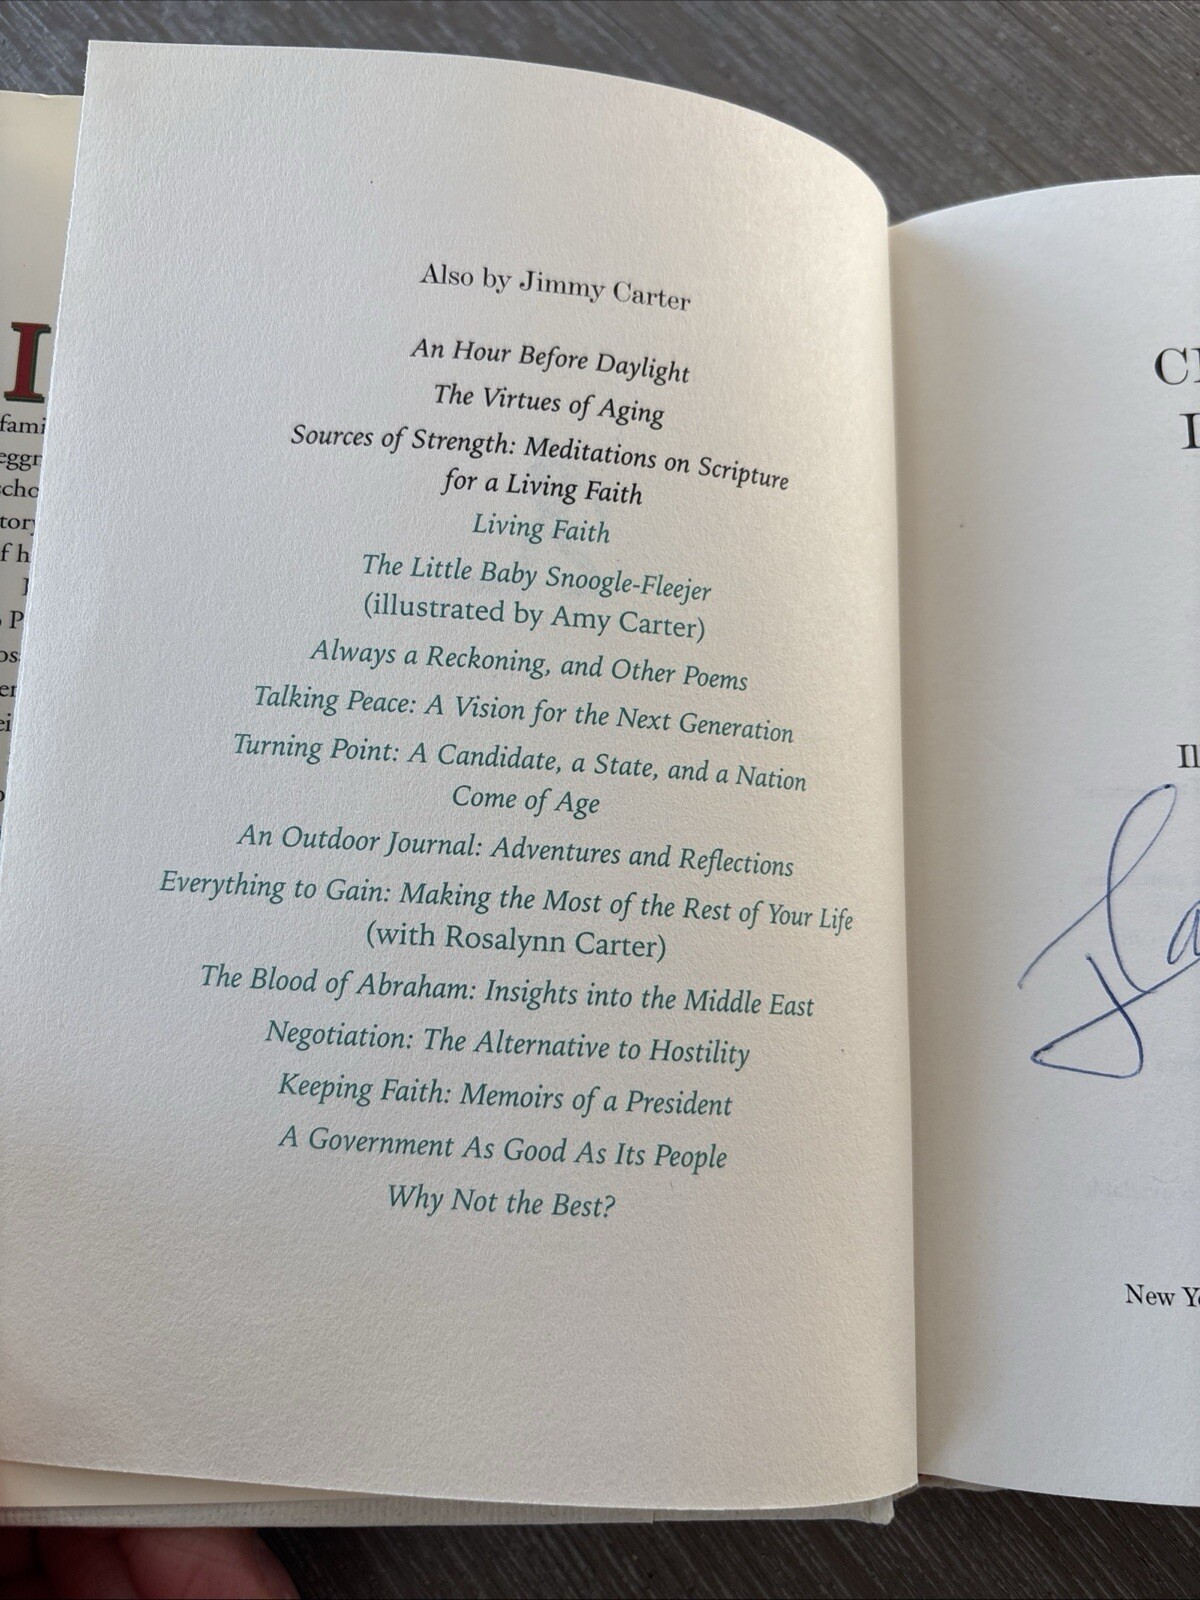 Also by Jimmy Carter
An Hour Before Daylight
The Virtues of Aging
Sources of Strength: Meditations on Scripture
for a Living Faith
Living Faith
The Little Baby Snoogle-Fleejer
(illustrated by Amy Carter)
Always a Reckoning, and Other Poems
Talking Peace: A Vision for the Next Generation
Turning Point: A Candidate, a State, and a Nation
Come of Age
An Outdoor Journal: Adventures and Reflections
Everything to Gain: Making the Most of the Rest of Your Life
(with Rosalynn Carter)
The Blood of Abraham: Insights into the Middle East
Negotiation: The Alternative to Hostility
Keeping Faith: Memoirs of a President
A Government As Good As Its People
Why Not the Best?
New